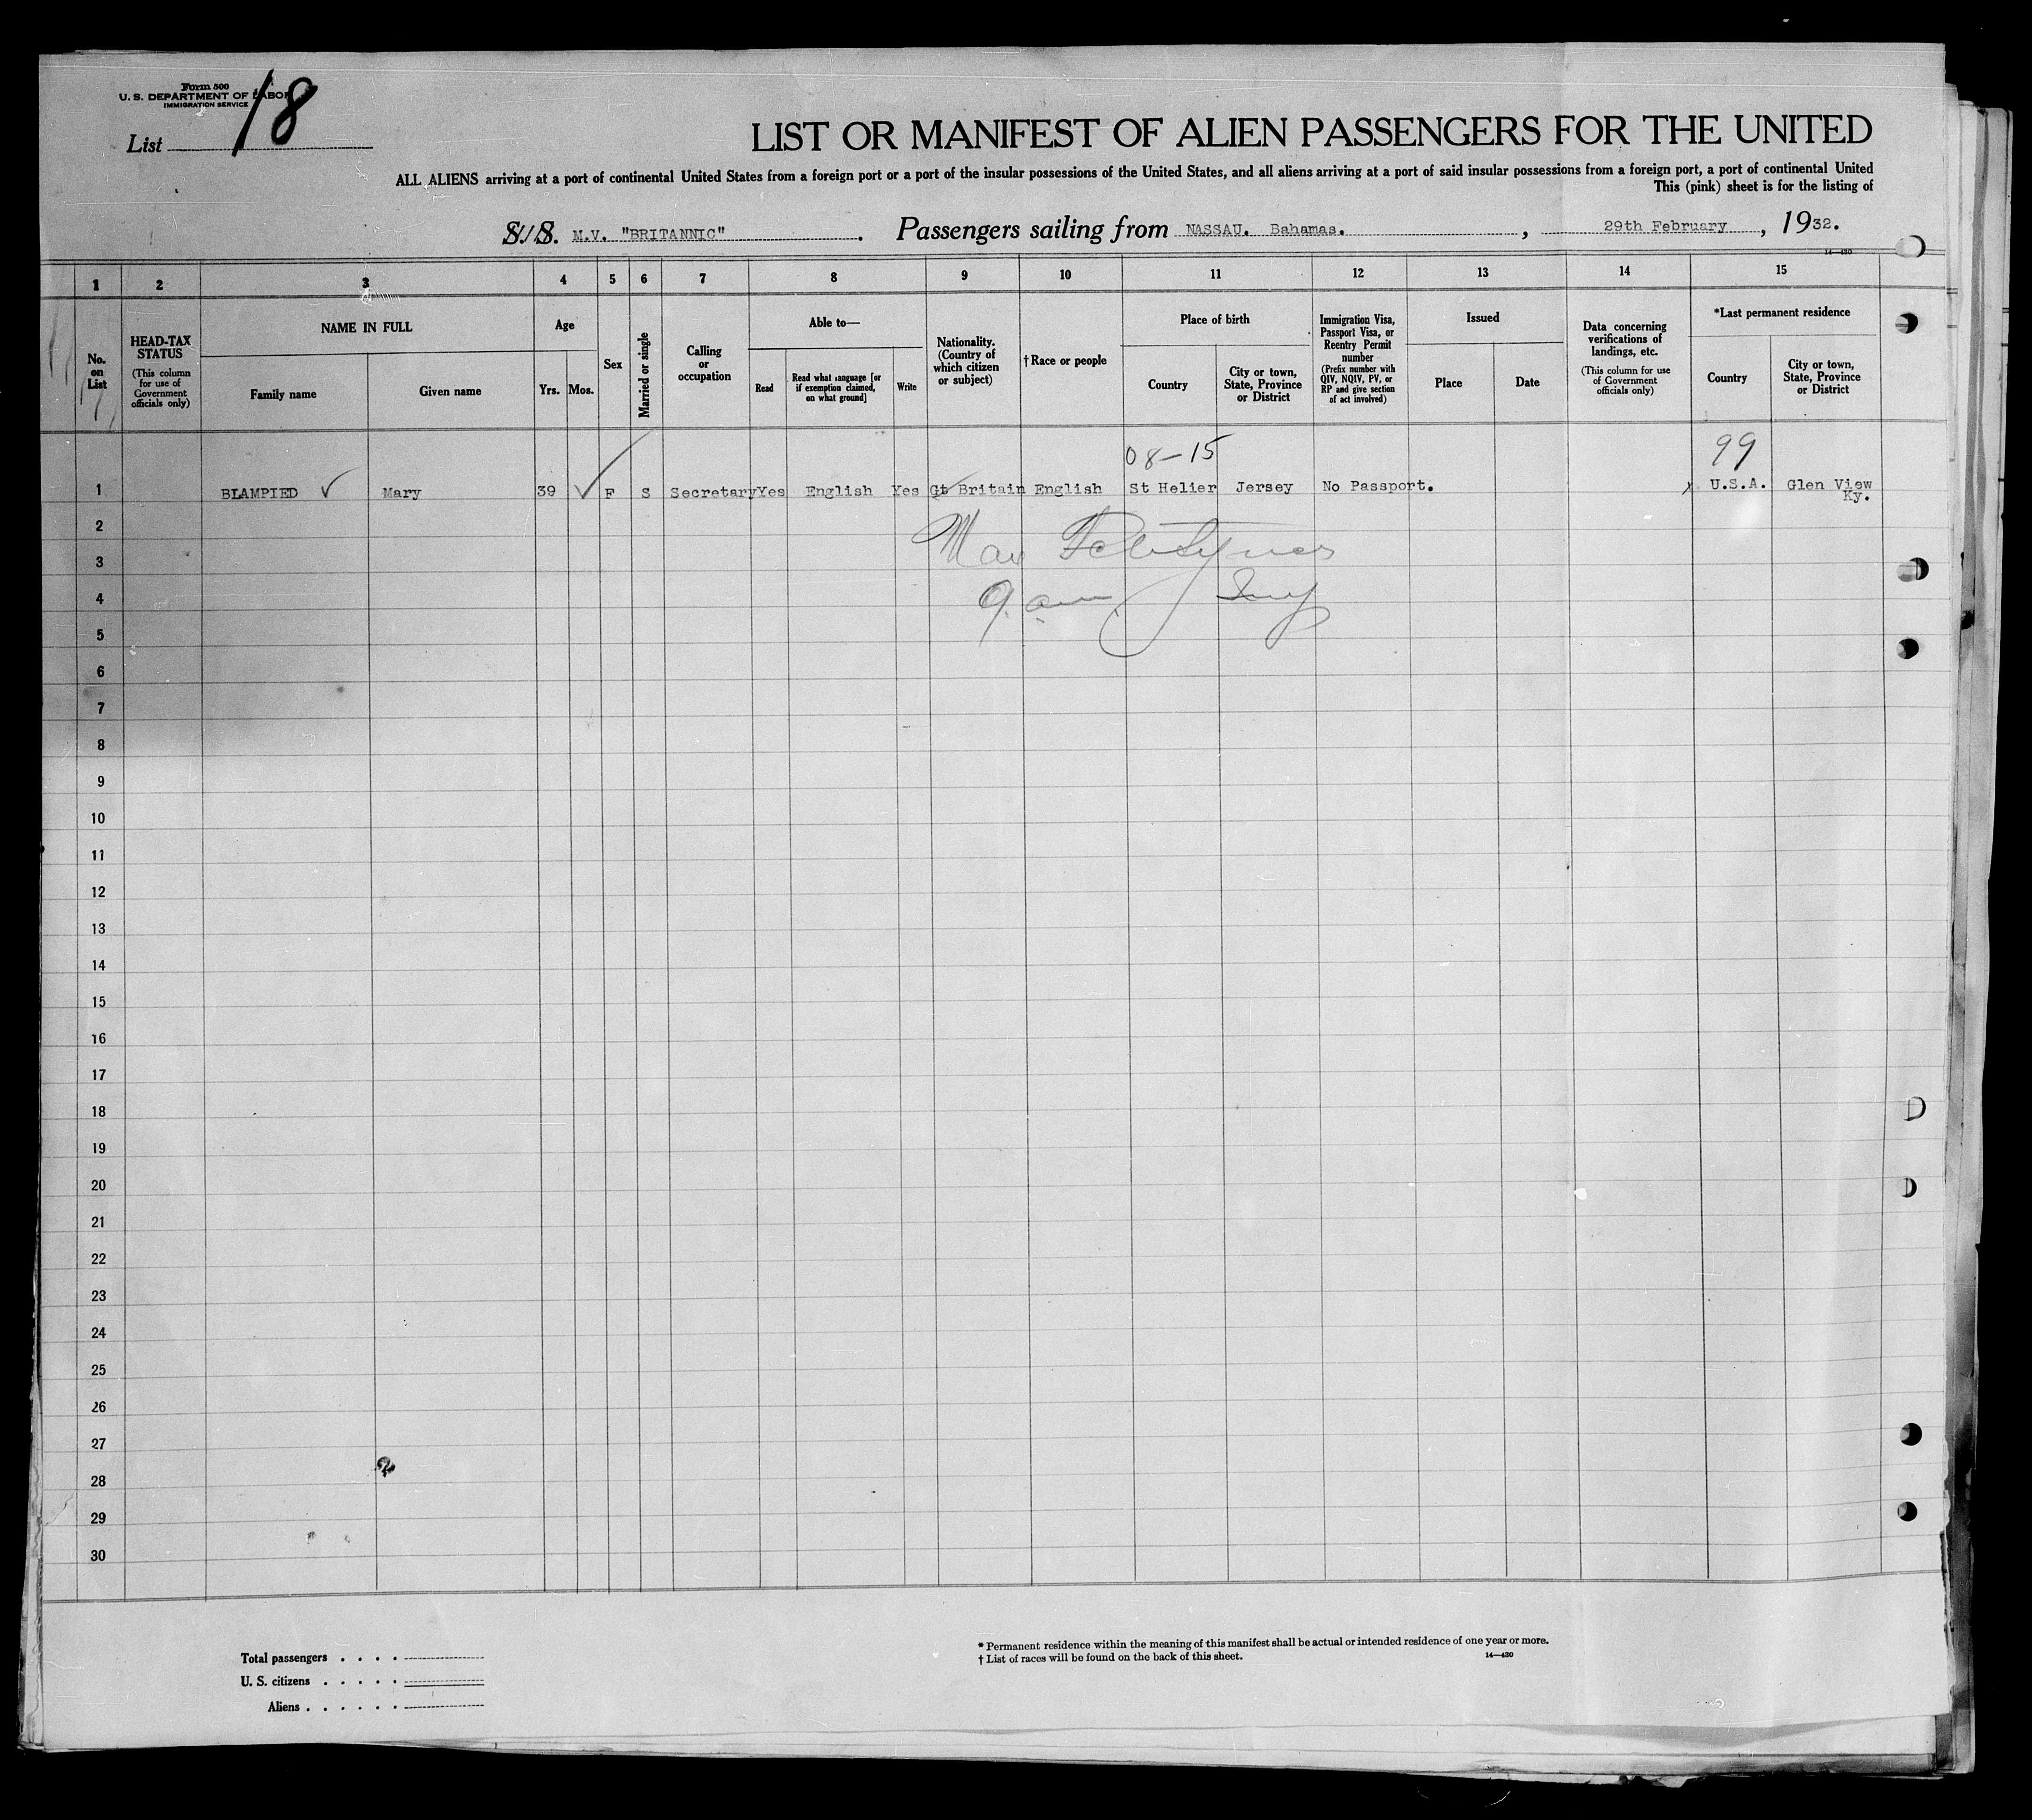 Form 500
U. S. DEPARTMENT OF LABOR
IMMIGRATION SERVICE
List 18
LIST OR MANIFEST OF ALIEN PASSENGERS FOR THE UNITED
ALL ALIENS arriving at a port of continental United States from a foreign port or a port of the insular possessions of the United States, and all aliens arriving at a port of said insular possessions from a foreign port, a port of continental United
This (pink) sheet is for the listing of
S. S. M.V. "BRITANNIC" . Passengers sailing from NASSAU. Bahamas. , 29th February , 1932.
14—430
1 2 3 4 5 6 7 8 9 10 11 12 13 14 15
No. on List
HEAD-TAX STATUS
(This column for use of Government officials only)
NAME IN FULL
Family name
Given name
Age
Yrs.
Mos.
Sex
Married or single
Calling or occupation
Able to—
Read
Read what language [or if exemption claimed, on what ground]
Write
Nationality. (Country of which citizen or subject)
†Race or people
Place of birth
Country
City or town, State, Province or District
Immigration Visa, Passport Visa, or Reentry Permit number
(Prefix number with QIV, NQIV, PV, or RP and give section of act involved)
Issued
Place
Date
Data concerning verifications of landings, etc.
(This column for use of Government officials only)
*Last permanent residence
Country
City or town, State, Province or District
08-15 99
1 BLAMPIED Mary 39 F S Secretary Yes English Yes Gt Britain English St Helier Jersey No Passport. U.S.A. Glen View
Ky.
2
3
4 9. a.m.
5
6
7
8
9
10
11
12
13
14
15
16
17
18
19
20
21
22
23
24
25
26
27
28
29
30
Total passengers . . . .
U. S. citizens . . . . .
Aliens . . . . . .
* Permanent residence within the meaning of this manifest shall be actual or intended residence of one year or more.
† List of races will be found on the back of this sheet.
14—430